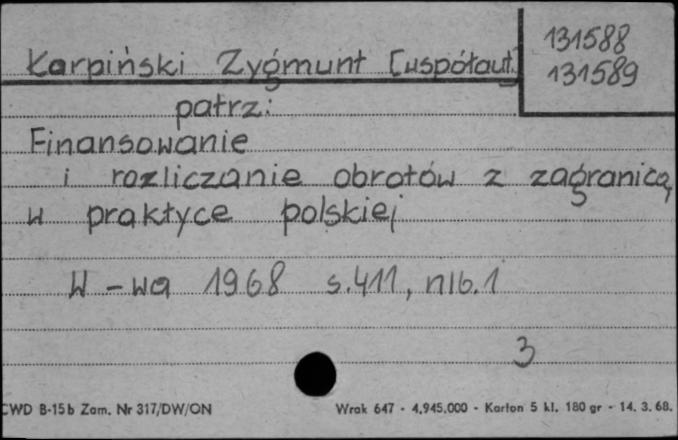 131588
Karpiński Zygmunt [współaut.]
131589
patrz:
Finansowanie
i rozliczanie obrotów z zagranicą
w praktyce polskiej
W-wa 1968 s.411, nlb.1
3
CWD B-15b Zam. Nr 317/DW/ON Wrak 647 - 4.945.000 - Karton 5 kl. 180 gr - 14. 3. 68.